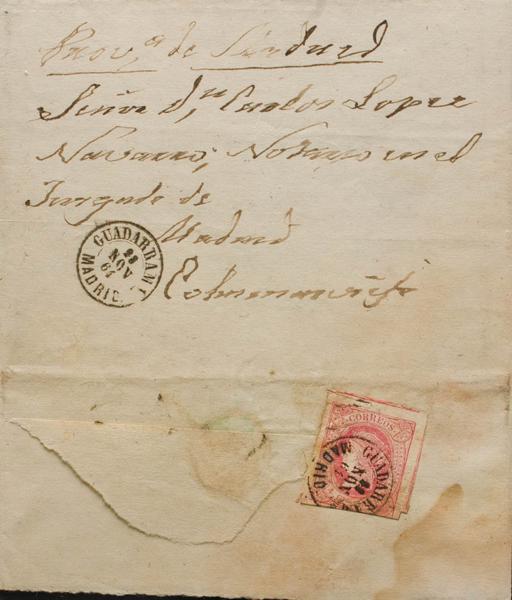 Prov,ª de Madrid
Señor Dn, Carlos Lopez
Navarro, Notario en el
Juzgado de
Madrid
GUADARRAMA
23
NOV
64
MADRID
CORREOS
GUADARRAMA
23
NOV
MADRID